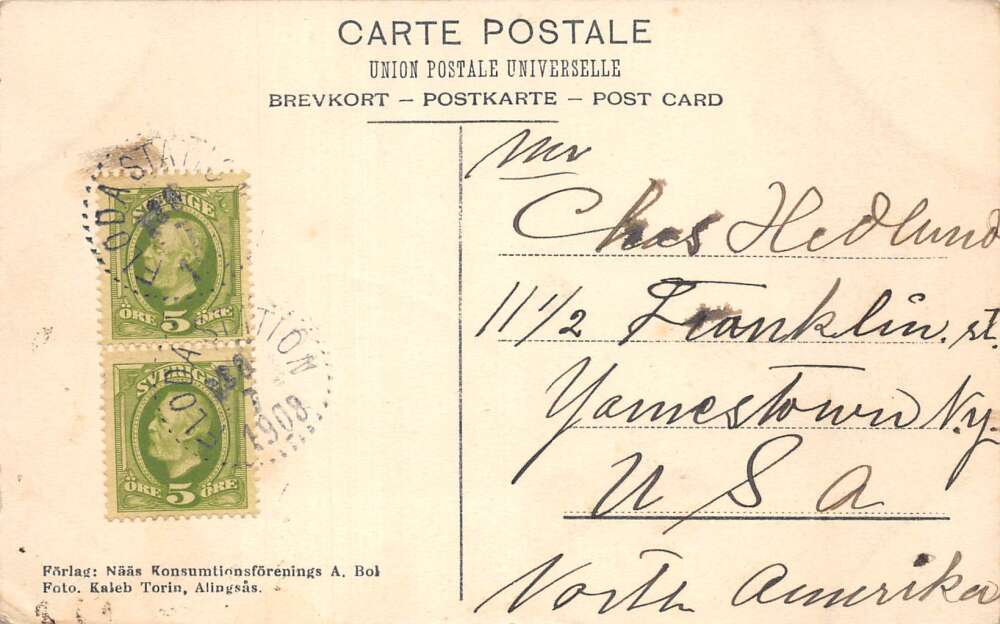 CARTE POSTALE
UNION POSTALE UNIVERSELLE
BREVKORT — POSTKARTE — POST CARD
FLODA STATION
SVERIGE
ÖRE 5 ÖRE
FLODA STATION
1908
SVERIGE
ÖRE 5 ÖRE
Mr
Chas Hedlund
11 1/2 Franklin. st.
Yamestown N.y.
U S A
North Amerika
Förlag: Nääs Konsumtionsförenings A. Bol
Foto. Kaleb Torin, Alingsås.